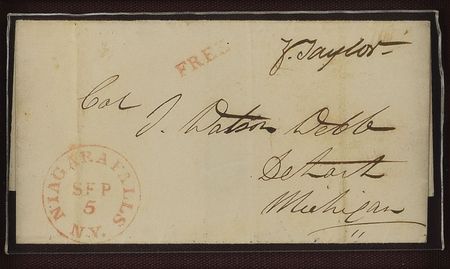 FREE
Z. Taylor
Col J. Watson Webb
Detroit
Michigan
NIAGARA FALLS N.Y.
SEP
5